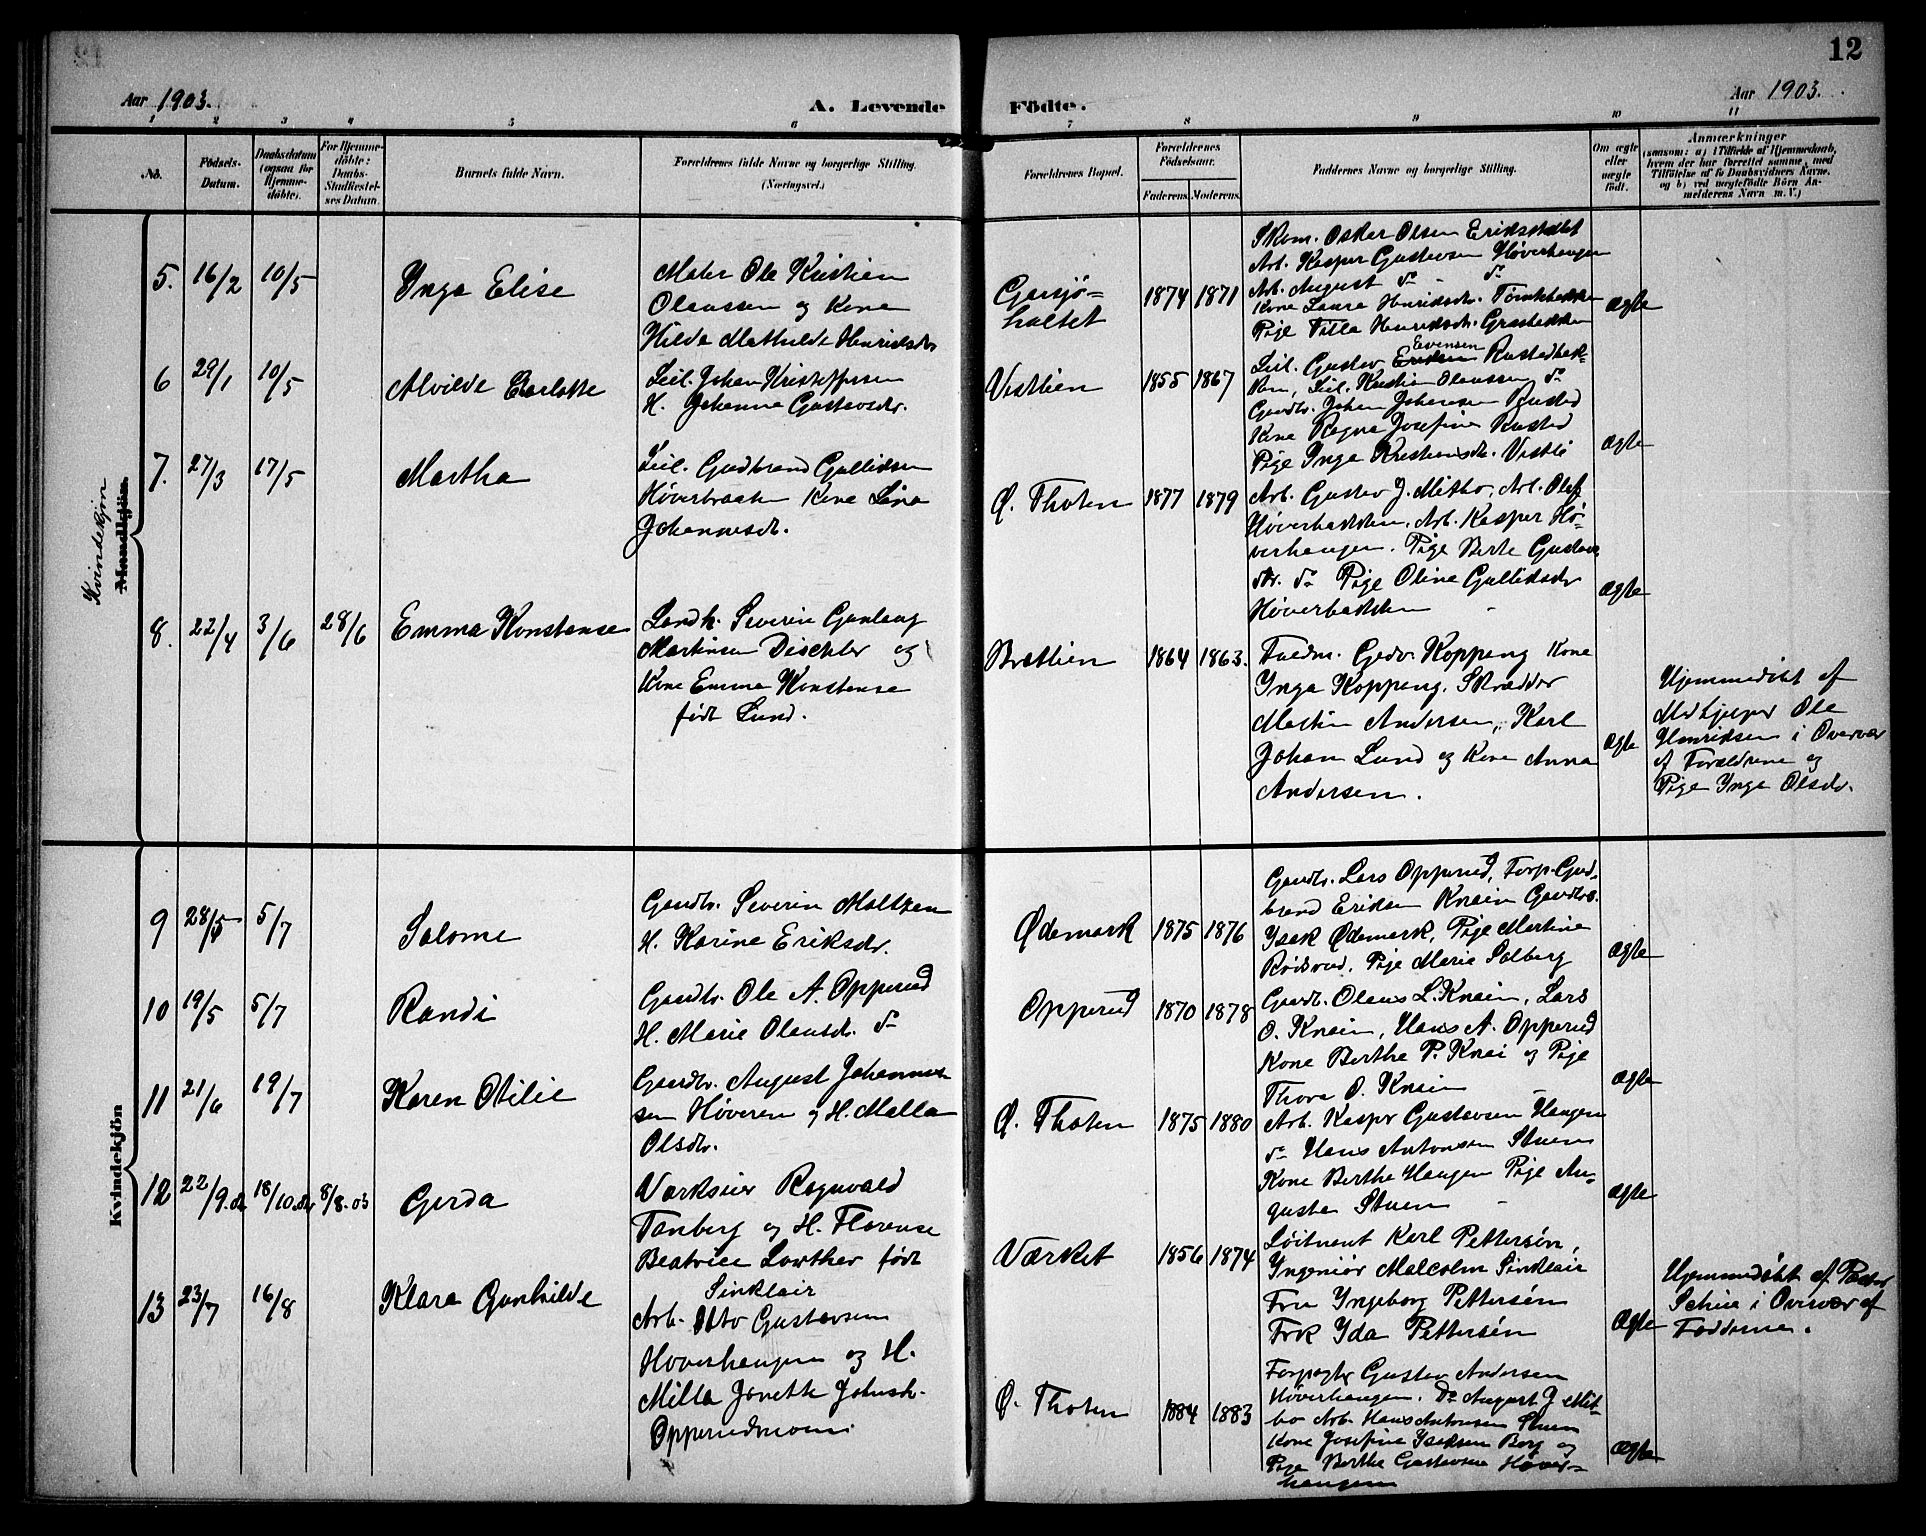 12
Aar 1903.
A. Levende Födte.
Aar 1903.
1 2 3 4 5 6 7 8 9 10 11
No.
Födsels-
Datum.
Daabsdatum
(ogsaa for
Hjemme-
döbte).
For Hjemme-
döbte:
Daabs-
Stadfæstel-
ses Datum.
Barnets fulde Navn.
Forældrenes fulde Navne og borgerlige Stilling.
(Næringsvei.)
Forældrenes Bopæl.
Forældrenes
Födselsaar.
Faderens. Moderens.
Faddernes Navne og borgerlige Stilling.
Om ægte
eller
uægte
födt.
Anmærkninger
(saasom: a) i Tilfælde af Hjemmedaab,
hvem der har forrettet samme, med
Tilföielse af to Daabsvidners Navne,
og b) ved uægtefödte Börn An-
melderens Navn m. V.)
Kvindekjön
Mandkjön
5. 16/2 10/5
Inga Elise
Maler Ole Kristian
Olaussen og Kone
Hilda Mathilde Henriksdr
Garsjö-
haltet
1874 1871
Skom. Oskar Olsen Eriksstalet
Arb. Kasper Gustavsen Høverhaugen
Arb. August do - do
Kone Laura Henriksdr.
Pige Tilla Henriksdr.
Ægte
6 29/1 10/5
Alvilde Carlotte
Leil. Johan Kristoffersen
H. Johanna Gustavsdr.
Vestlien
1855 1867
Leil. Gustav Eriksen Evensen Rustadbak-
ken, Leil. Kristian Olaussen do
Gaardbr. Johan Johansen Rustad
Kone Ragna Josefine Rustad
Pige Inga Kristiansdr. Vestli
Ægte
7. 27/3 17/5
Martha
Leil. Gudbrand Gullidsen
Høverbraaten Kone Lina
Johannesdr.
Ø. Thoten
1877 1879
Arb. Gustav J. Mitbo, Arb. Olaf
Høverbakken, Arb. Kasper Hø-
verhaugen. Pige Berte Gustavs
dr. do Pige Oline Gullidsdr
Høverbakken
Ægte
8. 22/4 3/6 28/6
Emma Konstanse
Landh. Severin Gunlaug
Martinsen Dischler og
Kone Emma Konstanse
født Lund.
Brattlien
1864 1863.
Fuldm. Gedv. Koppang Kone
Inga Koppang. Skrædder
Martin Andersen, Karl
Johan Lund og Kone Anna
Andersen.
Ægte
Hjemmedøbt af
Medhjælper Ole
Henriksen i Overvær
af Forældrene og
Pige Inga Olsdr.
Kvindekjön
9 28/5 5/7
Salome
Gaardbr. Severin Maltzen
H. Karine Eriksdr.
Ødemark
1875 1876
Gaardbr. Lars Opperud, Forp. Gud-
brand Eriksen Knain Gaardbr.
Isak Ødemark, Pige Martine
Rødsrud. Pige Marie Solberg
Ægte
10 19/5 5/7
Randi
Gaardbr. Ole A. Opperud
H. Marie Olausdr. do
Opperud
1870 1878
Gaardb. Olaus L. Knain, Lars
O. Knain, Hans A. Opperud
Kone Berthe P. Knai og Pige
Thora O. Knain
Ægte
11 21/6 19/7
Karen Otilie
Gaardbr. August Johannes-
sen Høveren og H. Malla
Olsdr.
Ø. Thoten
1875 1880
Arb. Kaspr Gustavsen Haugen
do Hans Antonsen Stuen
Kone Berthe Haugen Pige Au-
gusta Stuen
Ægte
12 22/9.02 18/10.02 8/8.03
Gerda
Værkseier Ragnvald
Tanberg og H. Florense
Beatrice Lowther født
Sinklair
Værket
1856 1874
Løitnant Karl Pettersøn,
Ingeniør Malcolm Sinklair
Fru Ingeborg Pettersøn
Frk Ida Pettersøn
Ægte
Hjemmedøbt af Pastor
i Overvær af
Fadderne.
13 23/7 16/8
Klara Gunhilde
Arb. Otto Gustavsen
Høverhaugen og H.
Milla Janette Johnsdr.
Opperudmoen
Ø. Thoten
1884 1883
Forpagter Gustav Andersen
Høverhaugen. Do August J. Mit-
bo Arb. Hans Antonsen Stuen
Kone Josefine Isaksen Borg og
Pige Berthe Gustavsen Høver-
haugen
Ægte